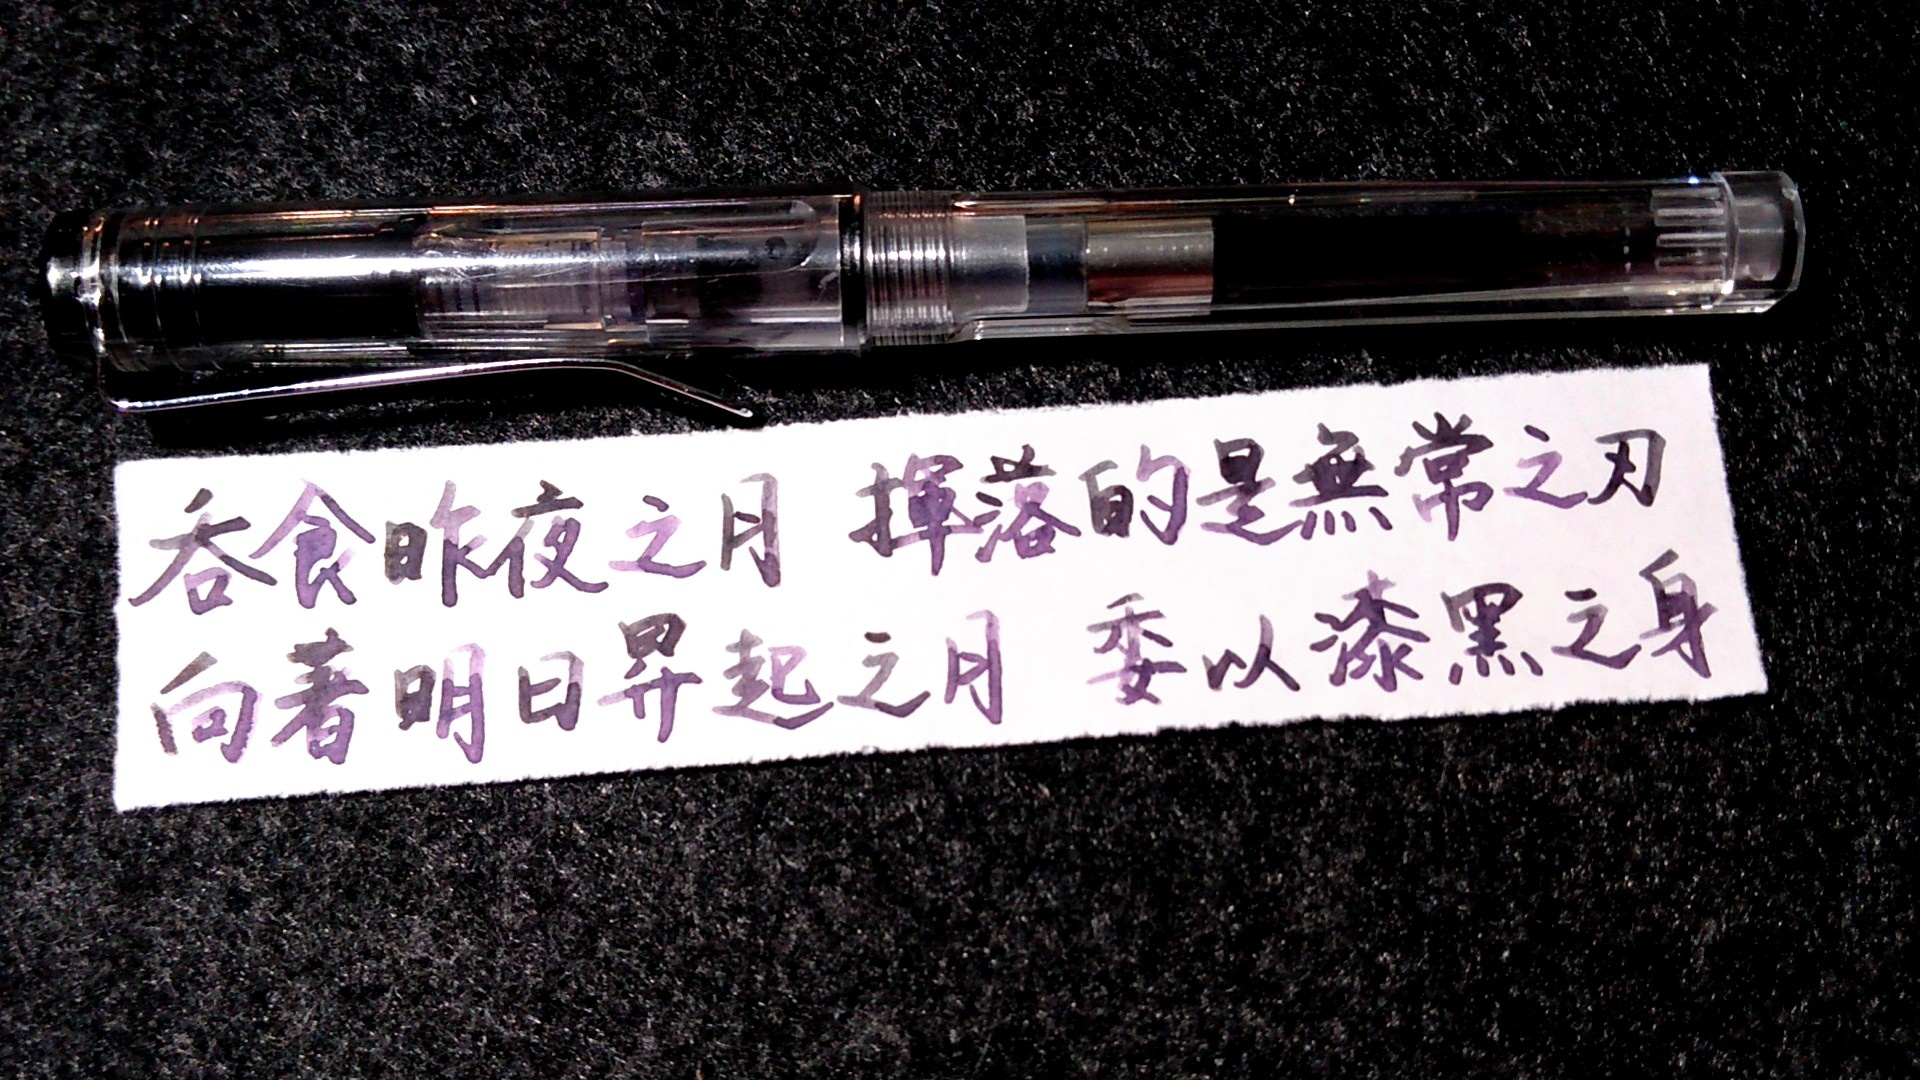 吞食昨夜之月 揮落的是無常之刃
向著明日昇起之月 委以漆黑之身